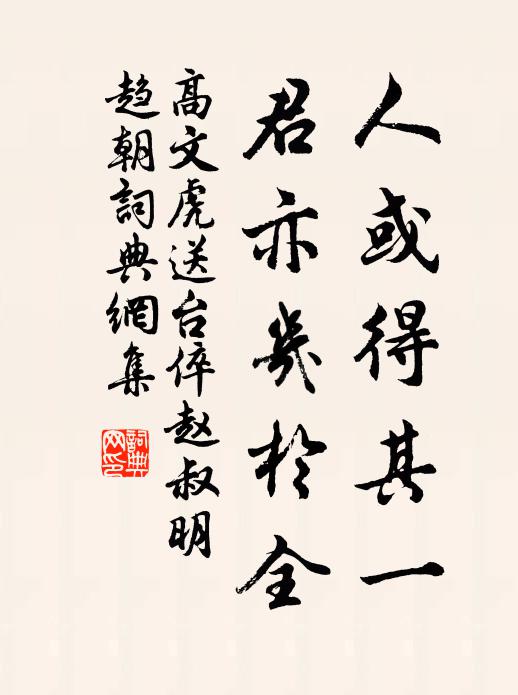 人或得其一
君亦幾於全
高文虎送台倅赵叔明
趋朝詞典網集
詞典网印